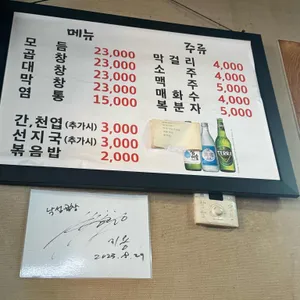 메뉴
모듬 23,000
곱창 23,000
대창 23,000
막창 23,000
염통 15,000
간,천엽(추가시) 3,000
선지국(추가시) 3,000
볶음밥 2,000
주류
막걸리 4,000
소주 4,000
맥주 4,000
매화수 5,000
복분자 5,000
TERRA
낙성곱창
지용
2025.8.29